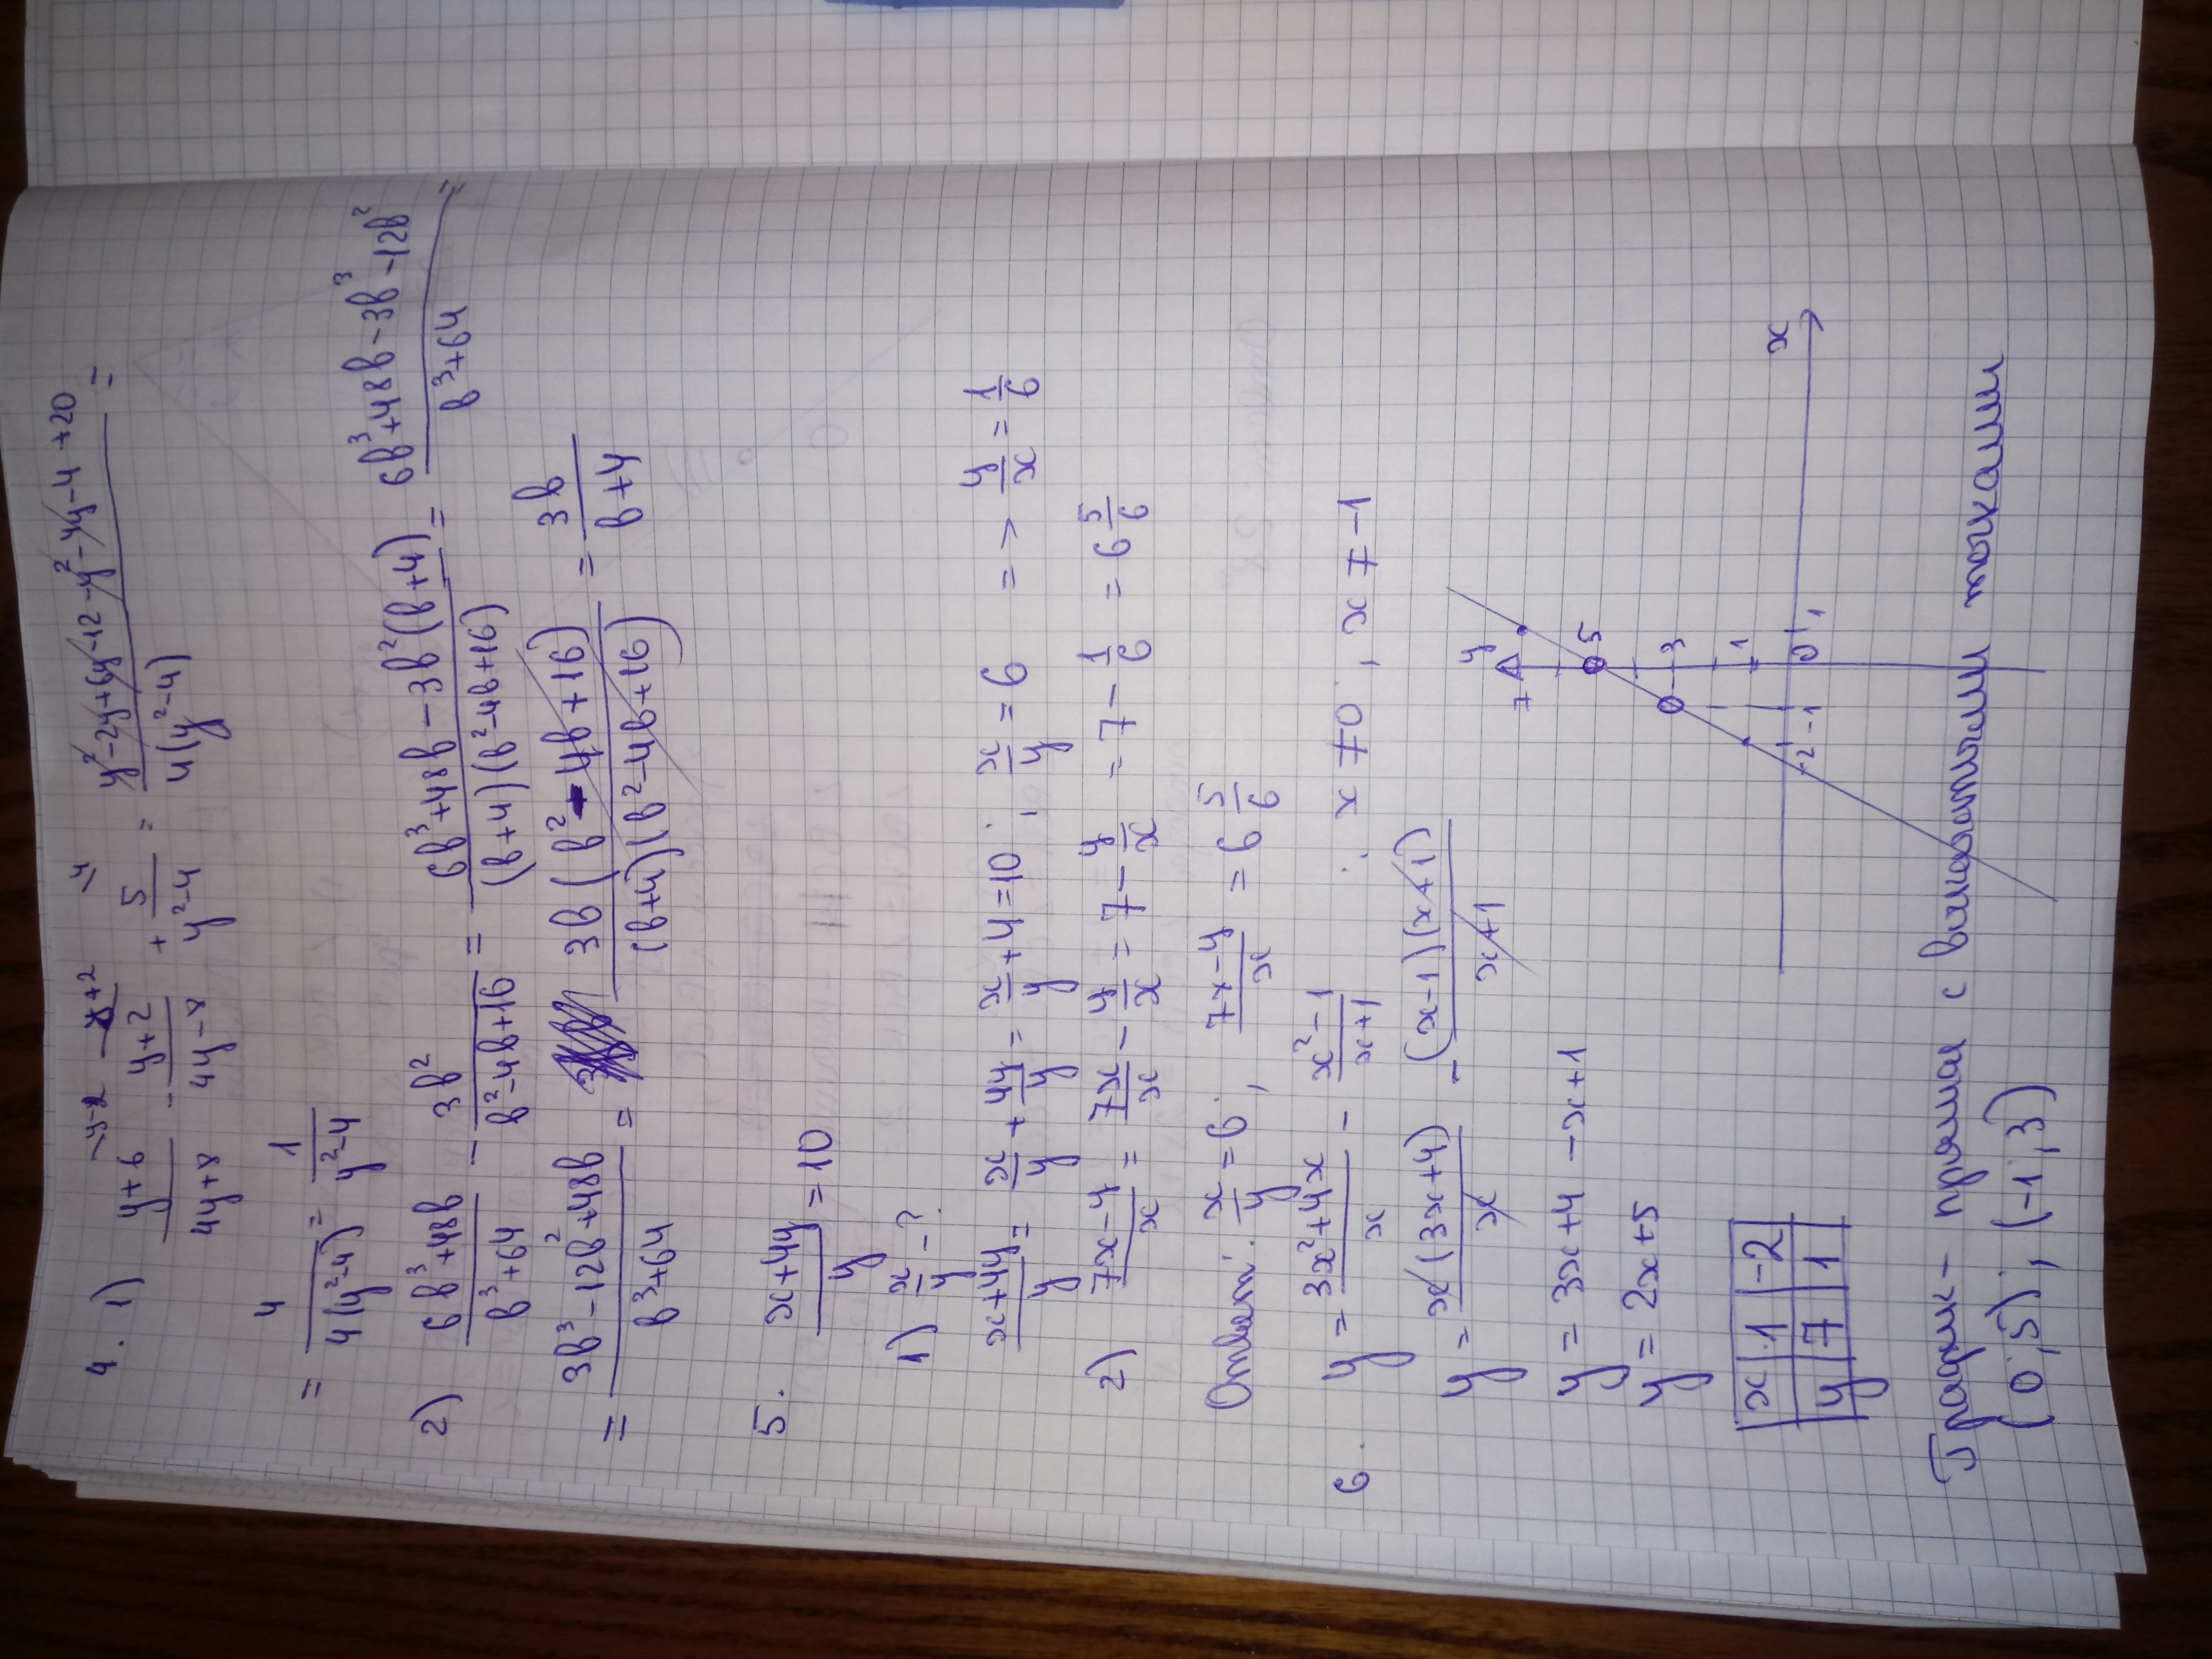 4. 1) (y+6)/(4y+8) - (y+2)/(4y-8) + 5/(y²-4) = (y²-2y+6y-12-y²-4y-4+20)/(4(y²-4)) =
= 4/(4(y²-4)) = 1/(y²-4)
2) (6b³+48b)/(b³+64) - 3b²/(b²-4b+16) = (6b³+48b-3b²(b+4))/((b+4)(b²-4b+16)) = (6b³+48b-3b³-12b²)/(b³+64) =
= (3b³-12b²+48b)/(b³+64) = 3b(b²-4b+16)/((b+4)(b²-4b+16)) = 3b/(b+4)
5. (x+4y)/y = 10
1) x/y - ?
(x+4y)/y = x/y + 4y/y = x/y + 4 = 10; x/y = 6 => y/x = 1/6
2) (7x-y)/x = 7x/x - y/x = 7 - y/x = 7 - 1/6 = 6 5/6
Ответ: x/y = 6; (7x-y)/x = 6 5/6
6. y = (3x²+4x)/x - (x²-1)/(x+1); x ≠ 0, x ≠ -1
y = x(3x+4)/x - (x-1)(x+1)/(x+1)
y = 3x+4-x+1
y = 2x+5
x | 1 | -2
y | 7 | 1
y 7 5 3 1 0 1 -2 -1 x
График - прямая с выколотыми точками
(0; 5); (-1; 3)